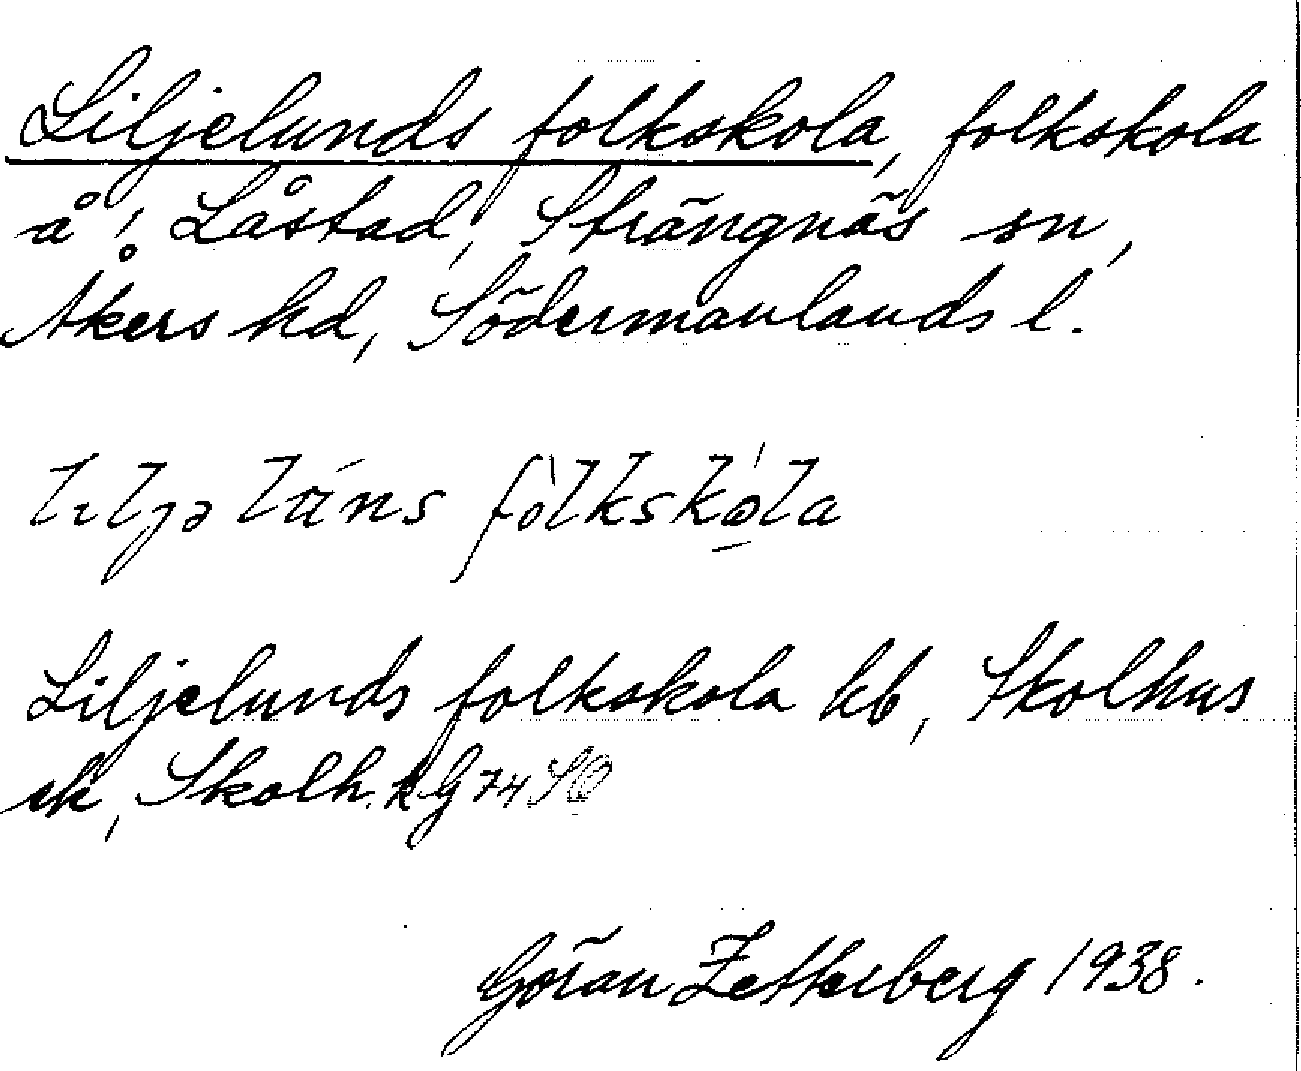 Liljelunds folkskola, folkskola
å ! Låstad, Strängnäs sn,
Åkers hd, Södermanlands l.
lıljəlúns fòlkskóla
Liljelunds folkskola kb, Skolhus
ek, Skolh. RG 74 SO
Göran Zetterberg 1938.